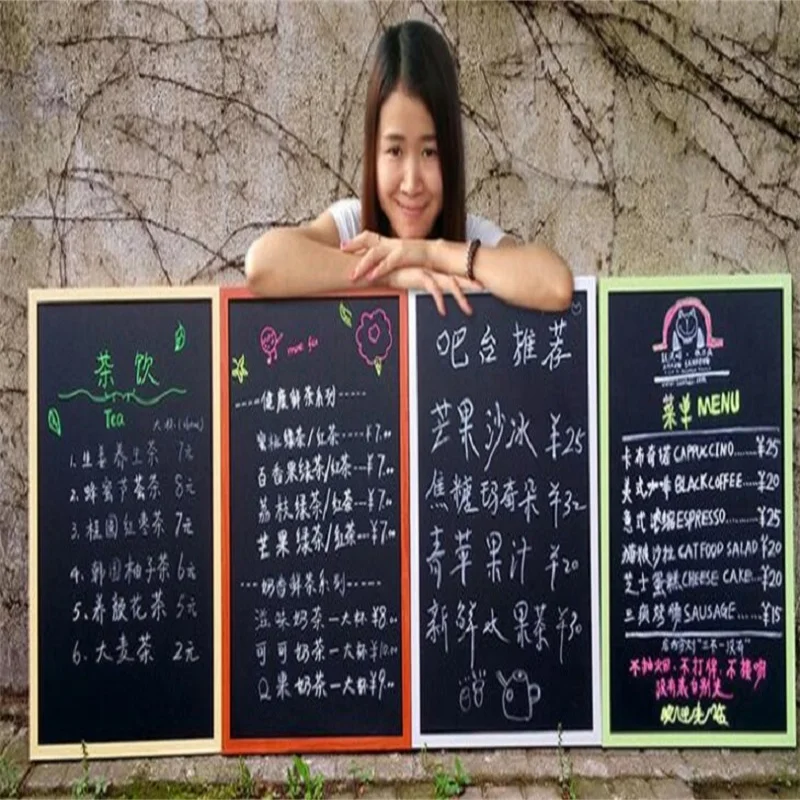 茶饮
Tea
1.生姜养生茶 7元
2.蜂蜜芦荟茶 8元
3.桂圆红枣茶 7元
4.韩国柚子茶 6元
5.养颜花茶 5元
6.大麦茶 2元
健康鲜茶系列
蜜桃绿茶/红茶----¥7.00
百香果绿茶/红茶---¥7.00
荔枝绿茶/红茶---¥7.00
芒果绿茶/红茶---¥7.00
奶香鲜茶系列
滋味奶茶一大杯¥8.00
可可奶茶一大杯¥10.00
Q果奶茶一大杯¥9.00
吧台推荐
芒果沙冰 ¥25
焦糖玛奇朵 ¥32
青苹果汁 ¥20
新鲜水果茶 ¥30
菜单 MENU
卡布奇诺 CAPPUCCINO......¥25
美式咖啡 BLACK COFFEE......¥20
意式浓缩 ESPRESSO......¥25
猫粮沙拉 CATFOOD SALAD ¥20
芝士蛋糕 CHEESE CAKE...¥20
烤物 SAUSAGE......¥15
"三不一没有"
不抽烟，不打牌，不接吻
没有最低消费
欢迎光临